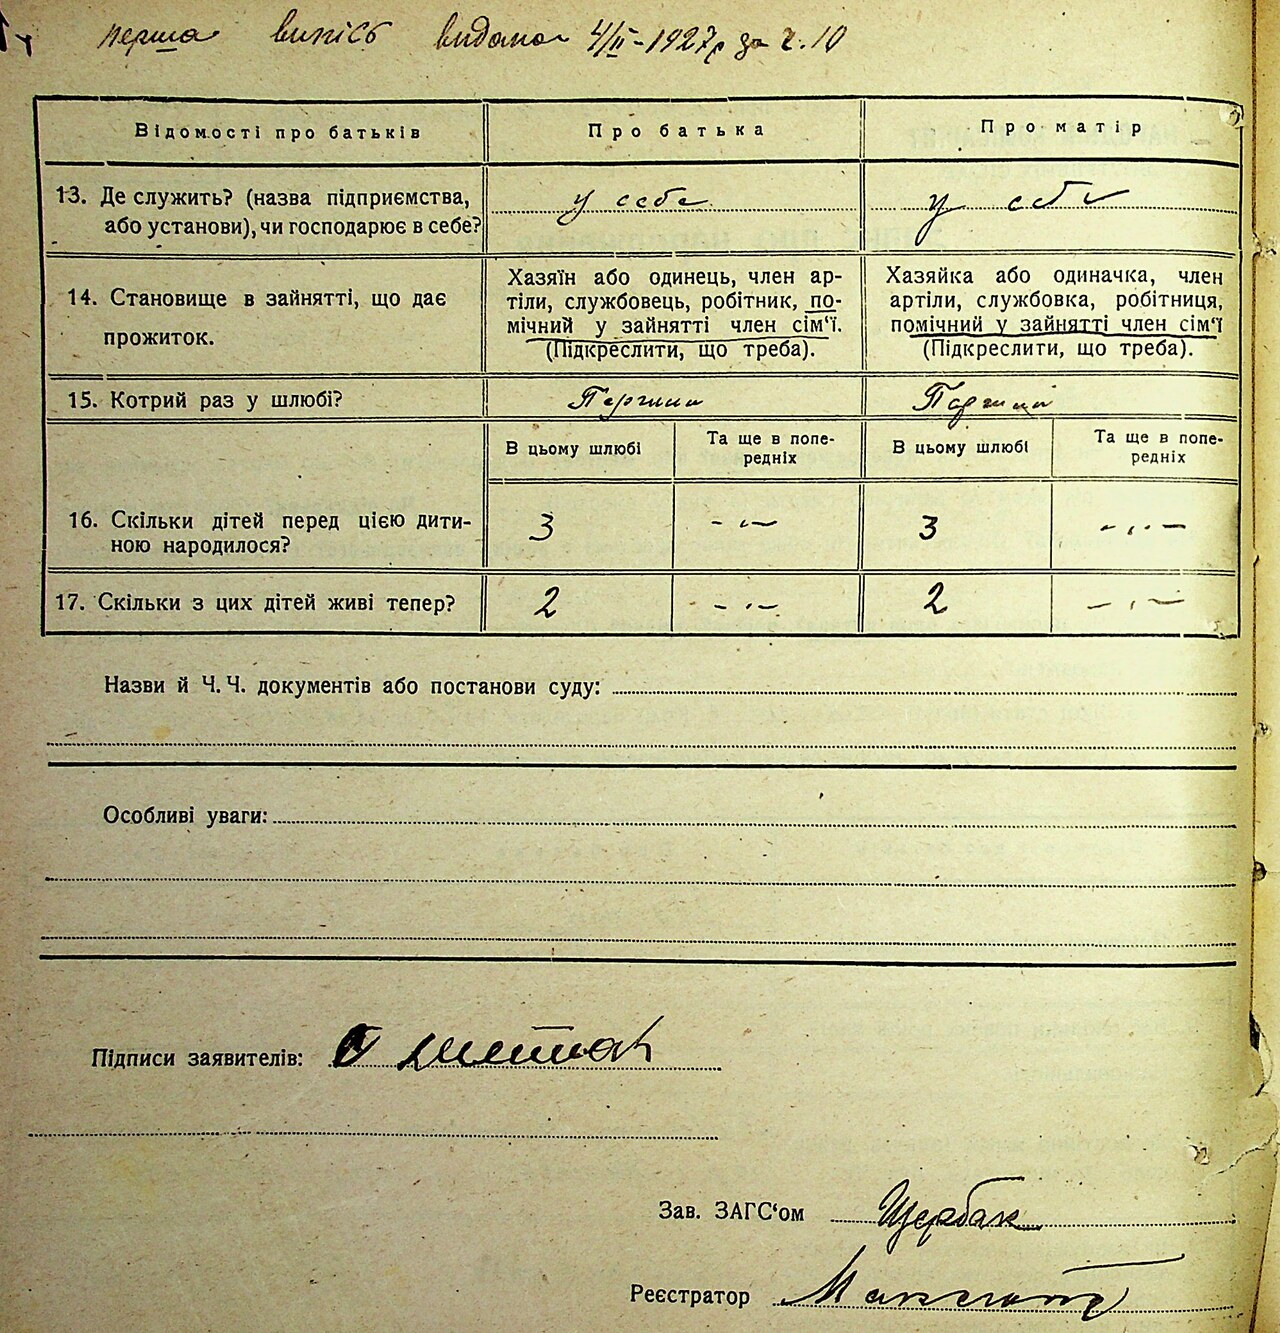 перша випись видана 4/II-1927р за ч. 10
Відомості про батьків
Про батька
Про матір
13. Де служить? (назва підприємства,
або установи), чи господарює в себе?
у себе
у себе
14. Становище в зайнятті, що дає
прожиток.
Хазяїн або одинець, член ар-
тіли, службовець, робітник, по-
мічний у зайнятті член сім'ї.
(Підкреслити, що треба).
Хазяйка або одиначка, член
артіли, службовка, робітниця,
помічний у зайнятті член сім'ї
(Підкреслити, що треба).
15. Котрий раз у шлюбі?
В цьому шлюбі
Та ще в попе-
редніх
В цьому шлюбі
Та ще в попе-
редніх
16. Скільки дітей перед цією дити-
ною народилося?
3
- „ -
3
- „ -
17. Скільки з цих дітей живі тепер?
2
- „ -
2
- „ -
Назви й Ч. Ч. документів або постанови суду:
Особливі уваги:
Підписи заявителів:
Зав. ЗАГС'ом Щербак
Реєстратор